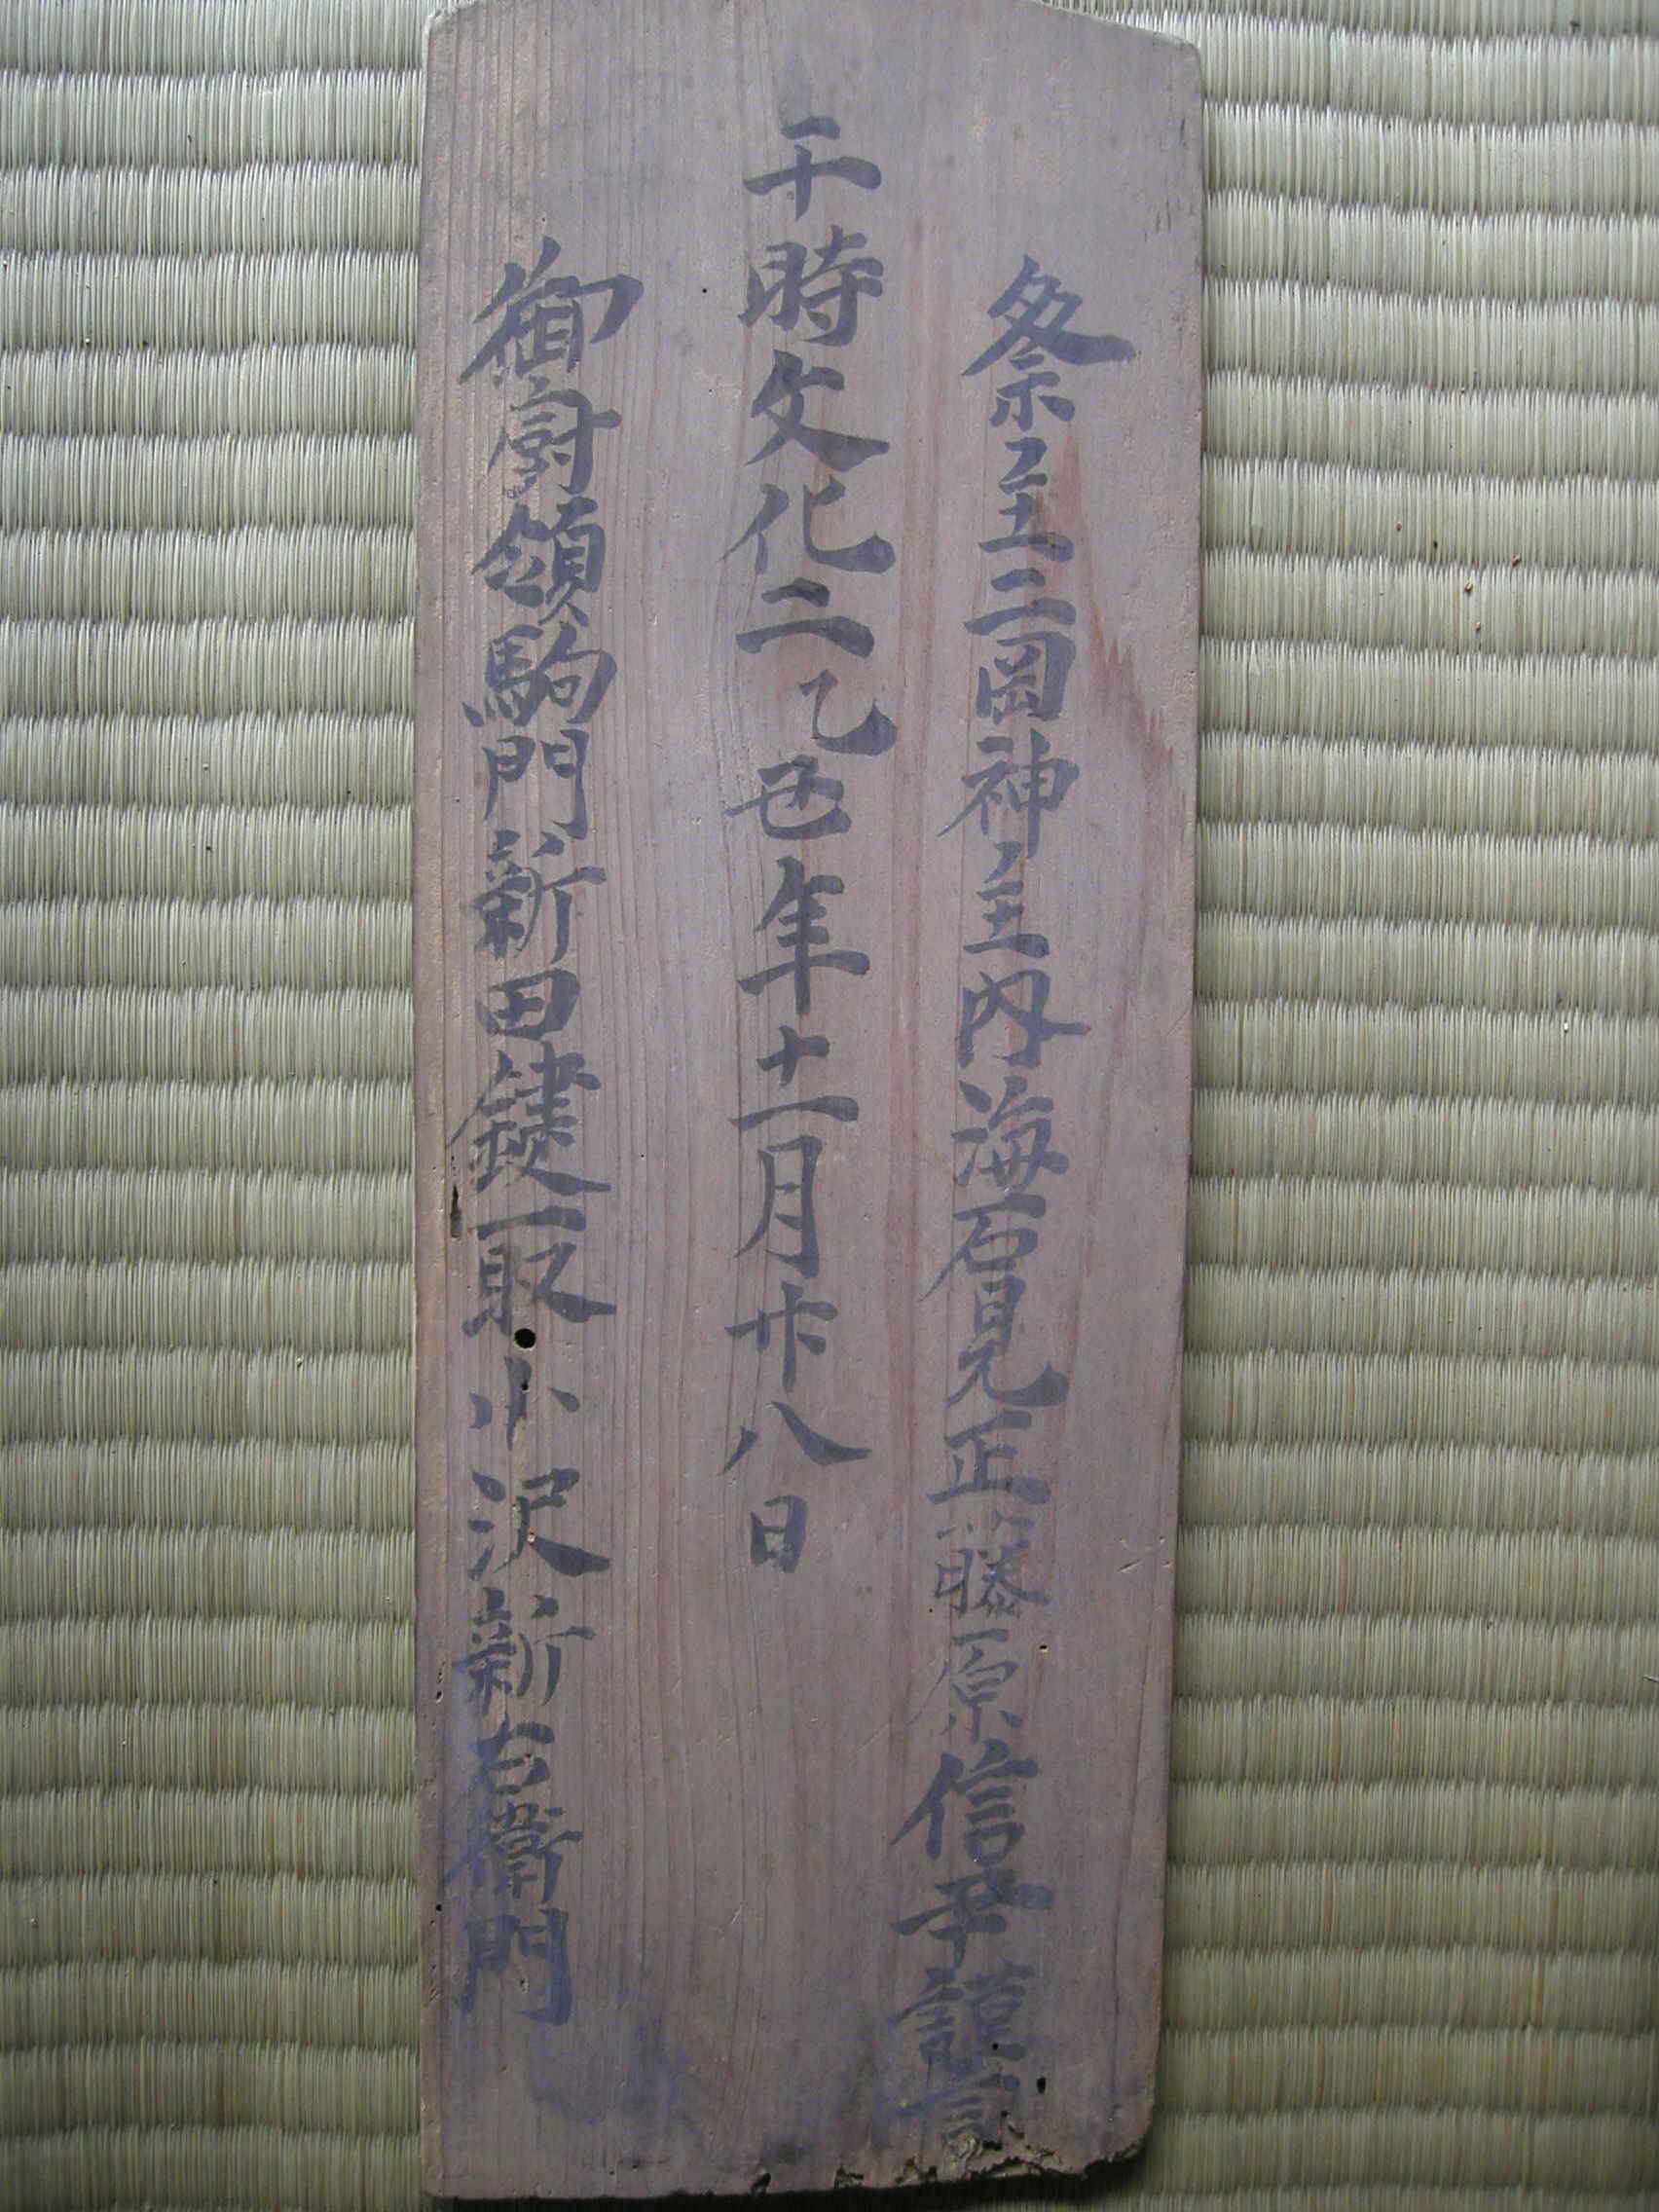 祭主二岡神主内海石見正藤原信孚謹言
干時文化二乙巳年十一月廿八日
御厨領駒門新田鍵取小沢新右衛門